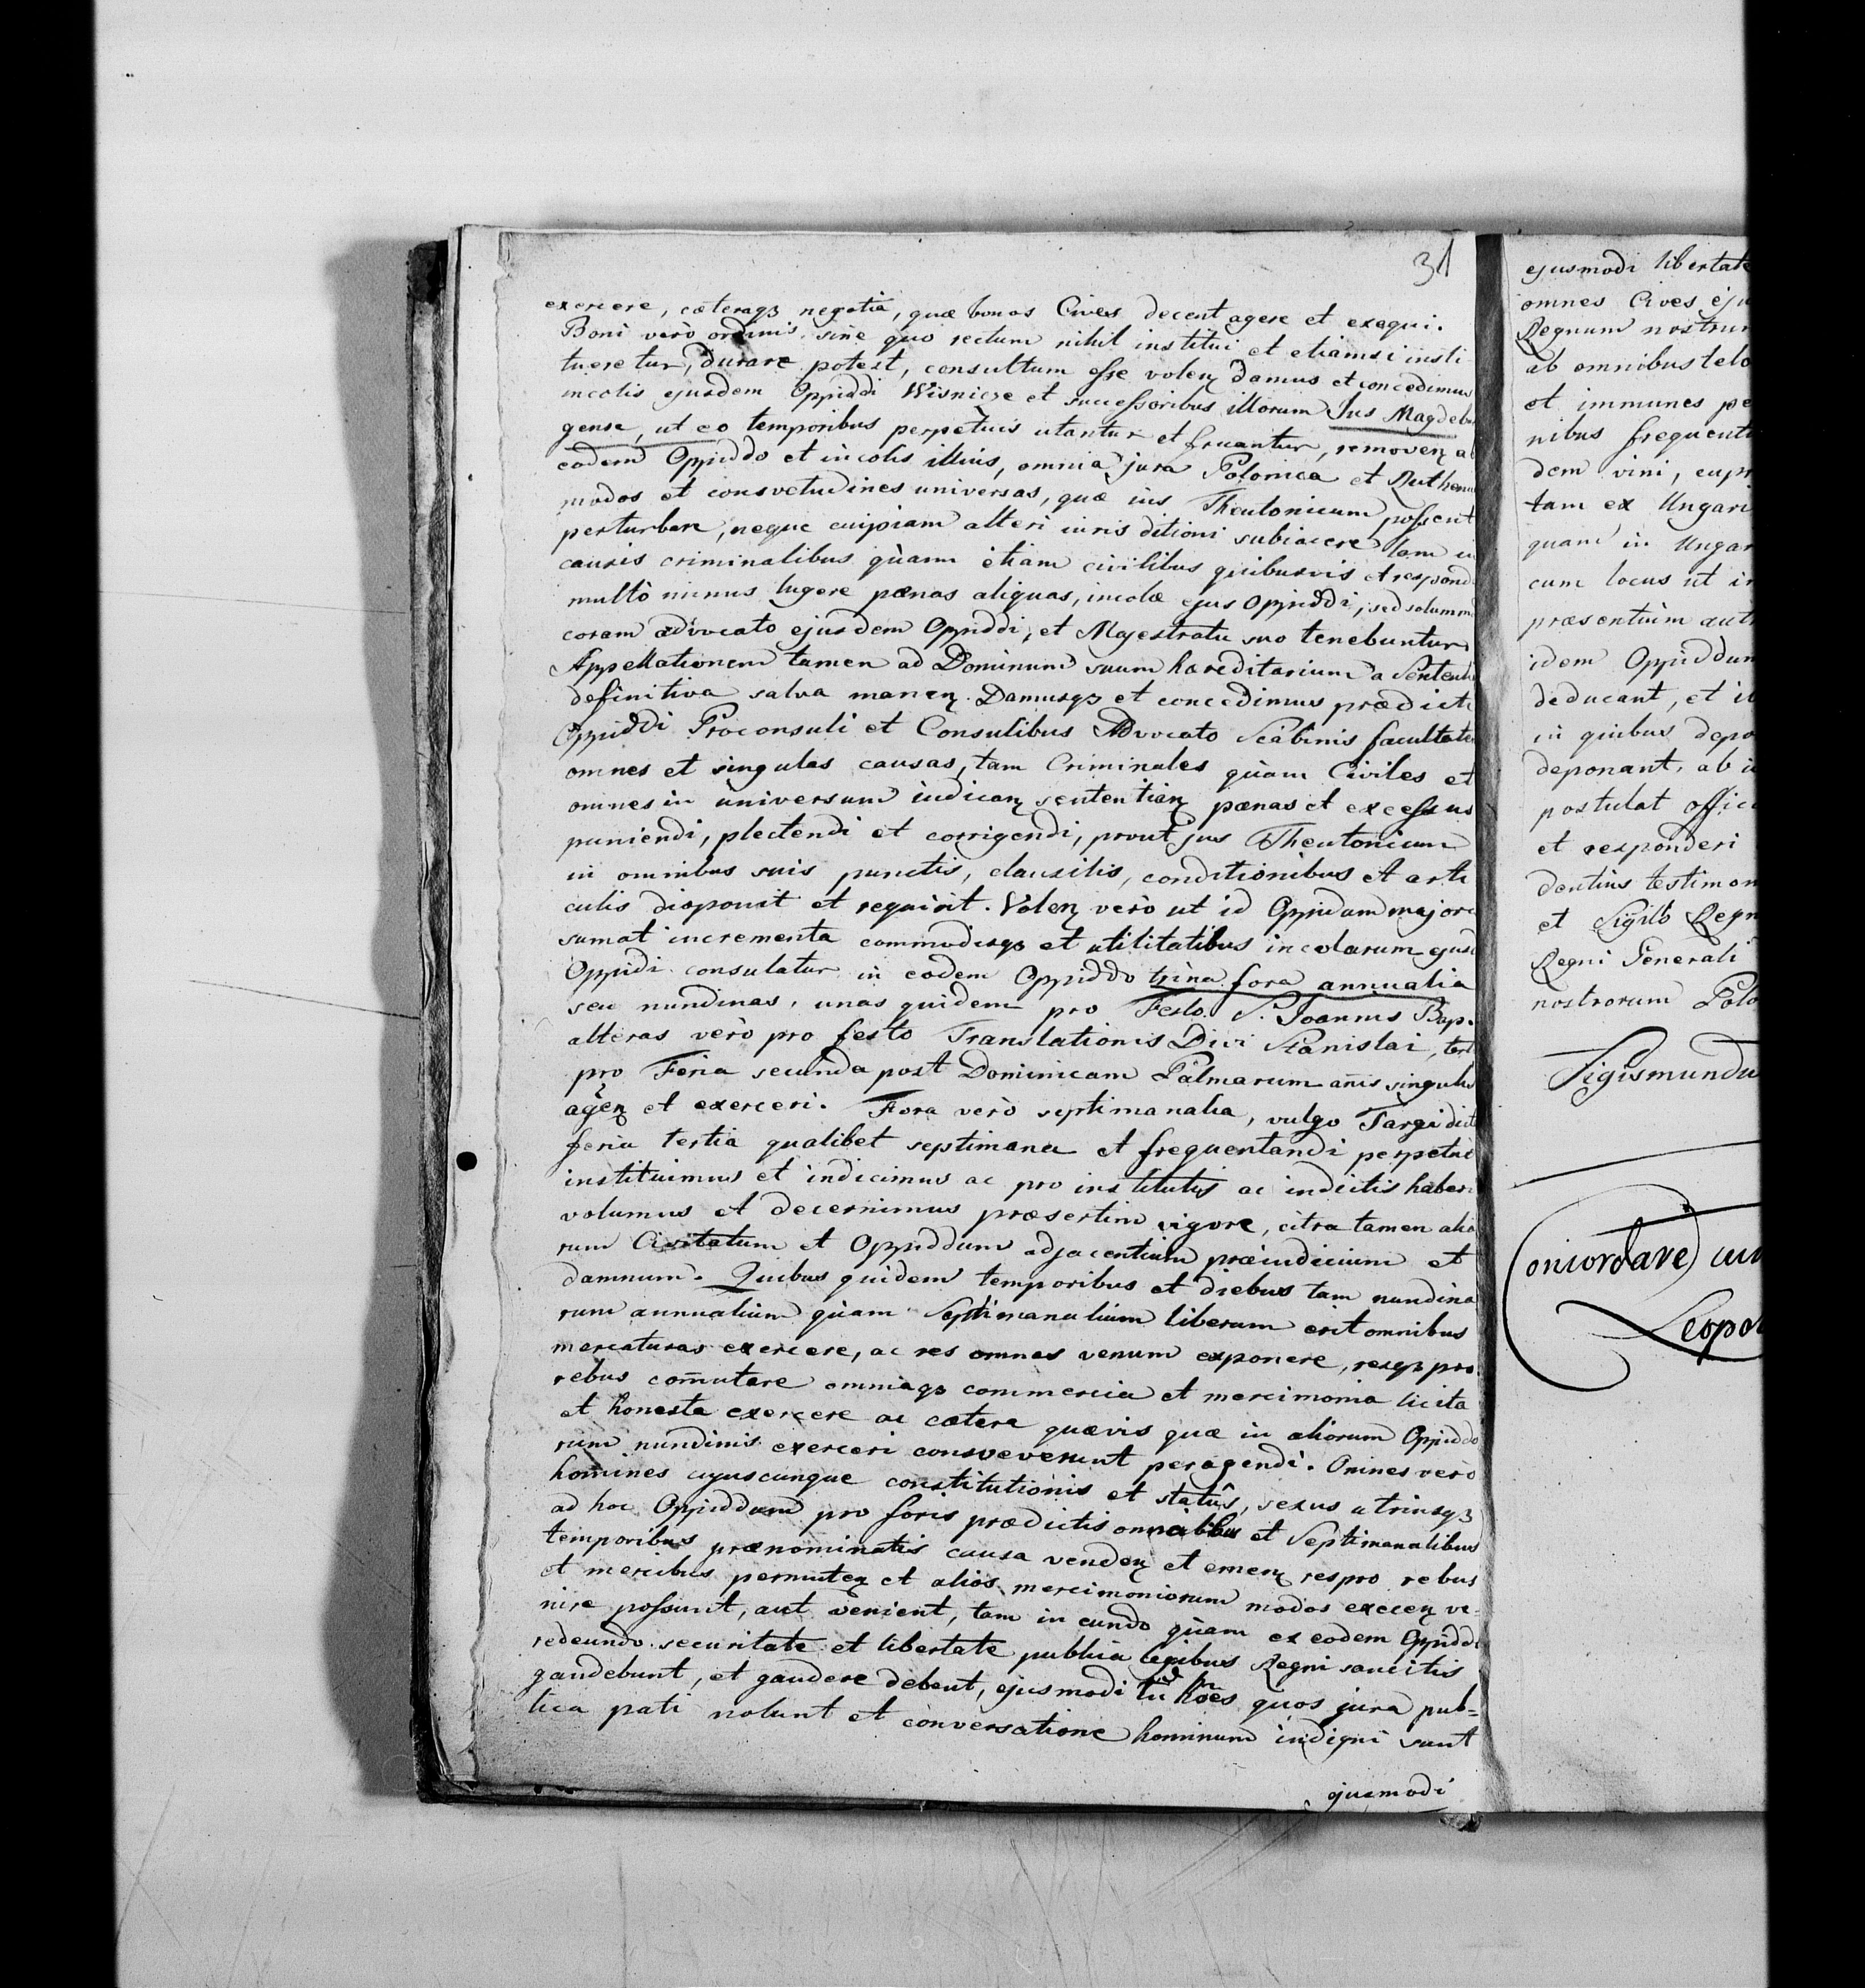 31
exercere, cæteraqз negotia, quæ bonos Cives decent agere et exequi.
Boni verò ordinis sine quo rectum nihil institui et etiamsi insti
tueretur, durare potest, consultum esse volenʒ damus et concedimus
incolis ejusdem Oppiddi Wisnicze et successoribus illorum Jus Magdebu
gense, ut eo temporibus perpetuis utantur et fruantur, removenʒ a
eodem Oppiddo et incolis illius, omnia jura Polonica et Ruthen
modos et consvetudines universas, quæ ius Theutonicum possent
perturbare, neque cuipiam alteri iuris ditioni subiacere tam i
causis criminalibus quàm etiam civilibus quibusvis et respond
multò minus lugere pænas aliquas, incolæ ejus Oppiddi, sed solumm
coram advocato ejusdem Oppiddi, et Magestratu suo tenebuntur
Appellationem tamen ad Dominum suum hæreditarium a Sententi
definitiva salva manenʒ. Damusqз et concedimus prædicti
Oppiddi Proconsuli et Consulibus Advocato Scabinis facultate
omnes et singulas causas, tam Criminales quàm Civiles et
omnes in universum iudicanʒ sententianʒ pænas et excessus
puniendi, plectendi et corrigendi, prout jus Theutonicum
in omnibus suis punctis, clausilis, conditionibus et arti
culis disponit et requirit. Volenʒ verò ut id Oppidum majora
sumat incrementa commodisqз et utilitatibus incolarum ejusd
Oppidi consulatur in eodem Oppiddo trina fora annualia
seu nundinas, unas quidem pro Festo S. Joannis Bap.
alteras verò pro festo Translationis Divi Stanislai, tert
pro Feria secunda post Dominicam Palmarum anis singulis
agenʒ et exerceri. Fora verò septimanalia, vulgo Targi dict
feria tertia qualibet septimana et frequentandi perpetuò
instituimus et indicimus ac pro institutis ac indictis haberi
volumus et decernimus præsertim vigore, citra tamen alio
rum Civitatum et Oppiddum adjacentium præiudicium et
damnum. Quibus quidem temporibus et diebus tam nundina
rum annualium quàm Septimanalium liberum erit omnibus
mercaturas exercere, ac res omnes venum exponere, resqз pro
rebus comutare omniaqз commercia et mercimonia licita
et honesta exercere ac cætera quævis quæ in aliorum Oppiddo
rum nundinis exerceri consveverunt peragendi. Omnes verò
homines cujuscunque constitutionis et statûs, sexus utriusqз
ad hoc Oppiddum pro foris prædictis et Septimanalibus
temporibus prænominatis causa vendenʒ et emenʒ res pro rebus
et mercibus permutenʒ et alios mercimoniorum modos exercenʒ ve-
nire possunt, aut venient, tam in eundo quàm ex eodem Oppiddo
redeundo securitate et libertate publica legibus Regni sancitis
gaudebunt, et gaudere debent, ejusmodi tñ hoes quos jura pub=
lica pati nolunt et conversatione hominum indigni sunt
ejusmodi
ejusmodi libertate
omnes Cives eju
Regnum nostrum
ab omnibus telo
et immunes pe
nibus frequent
dem vini, cupr
tam ex Ungari
quam in Ungar
cum locus ut i
præsentium aut
idem Oppiddum
deducant, et i
in quibus depo
deponant, ab i
postulat offici
et responderi
dentius testimon
et Sigilo Regn
Regni Generali
nostrorum Polo
Sigismundu
Concordare cu
Leopol